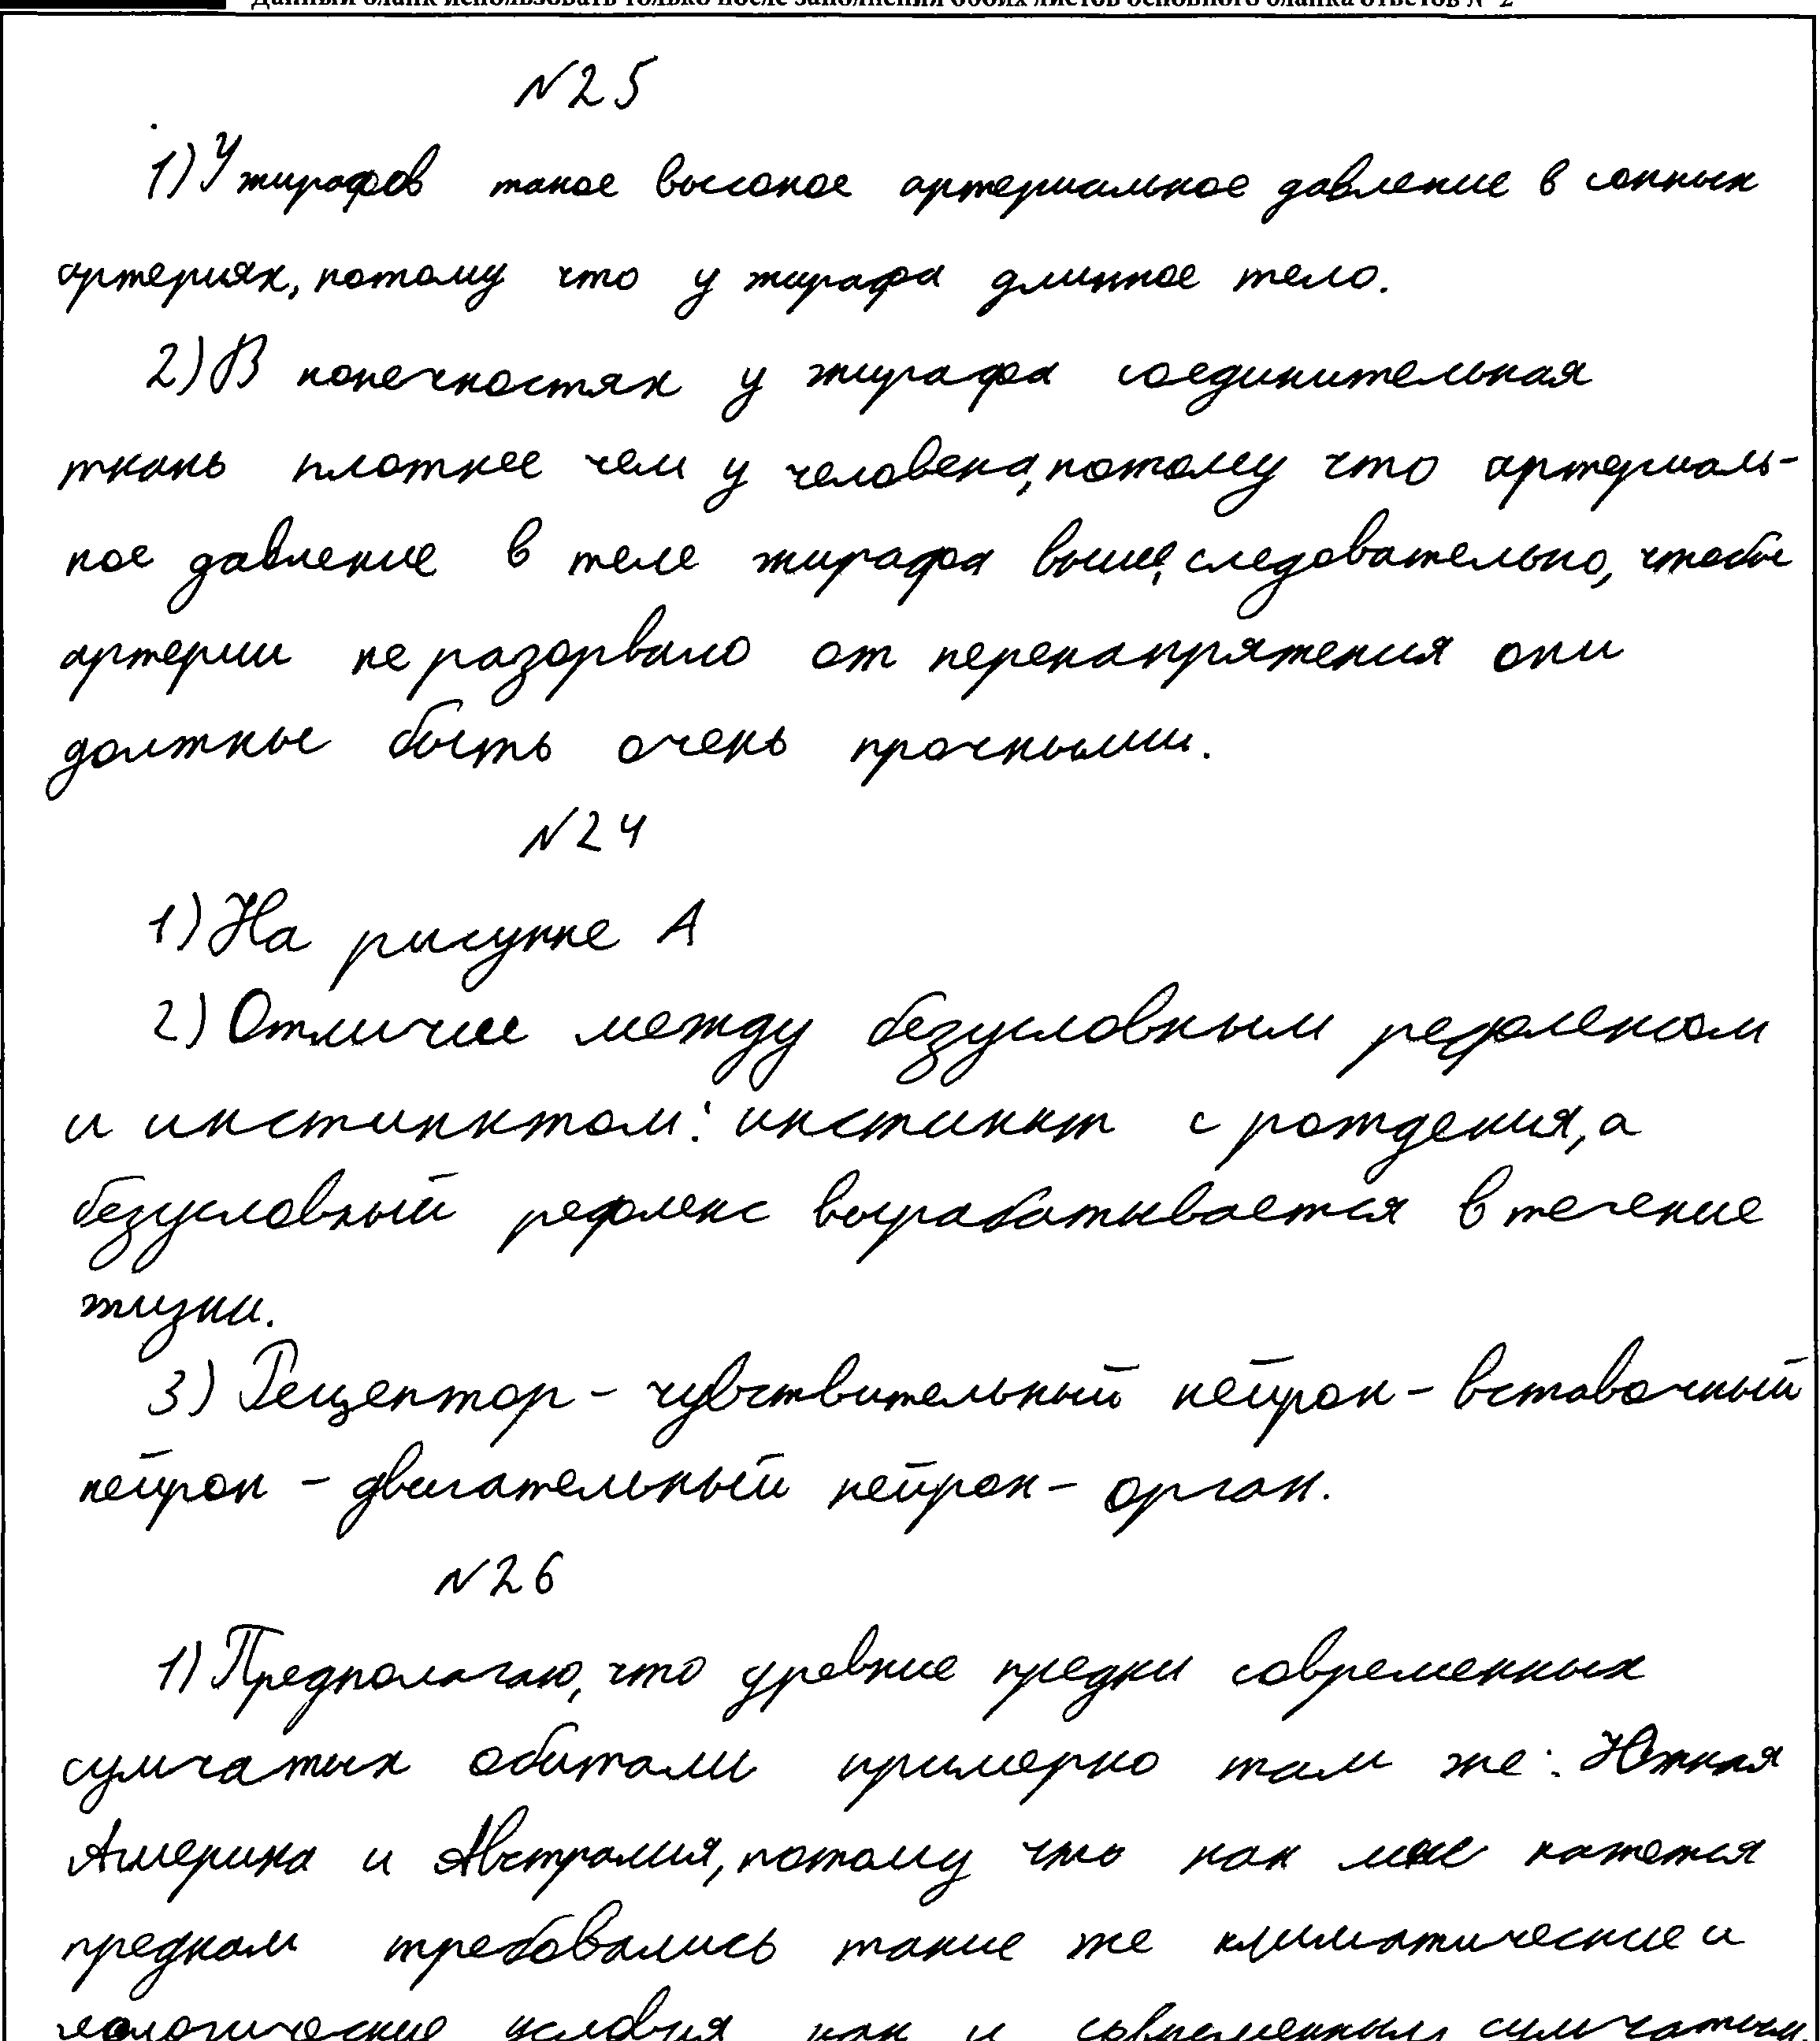 Данный бланк использовать только после заполнения обоих листов основного бланка ответов № 2
№25
1) У жирафов такое высокое артериальное давление в сонных
артериях, потому что у жирафа длинное тело.
2) В конечностях у жирафа соединительная
ткань плотнее чем у человека, потому что артериаль-
ное давление в теле жирафа выше, следовательно, чтобы
артерии не разорвало от перенапряжения они
должны быть очень прочными.
№24
1) На рисунке А
2) Отличие между безусловным рефлексом
и инстинктом: инстинкт с рождения, а
безусловный рефлекс вырабатывается в течение
жизни.
3) Рецептор - чувствительный нейрон - вставочный
нейрон - двигательный нейрон - орган.
№26
1) Предполагаю, что древние предки современных
сумчатых обитали примерно там же: Южная
Америка и Австралия, потому что как мне кажется
предкам требовались такие же климатические и
условия как и современным сумчатым